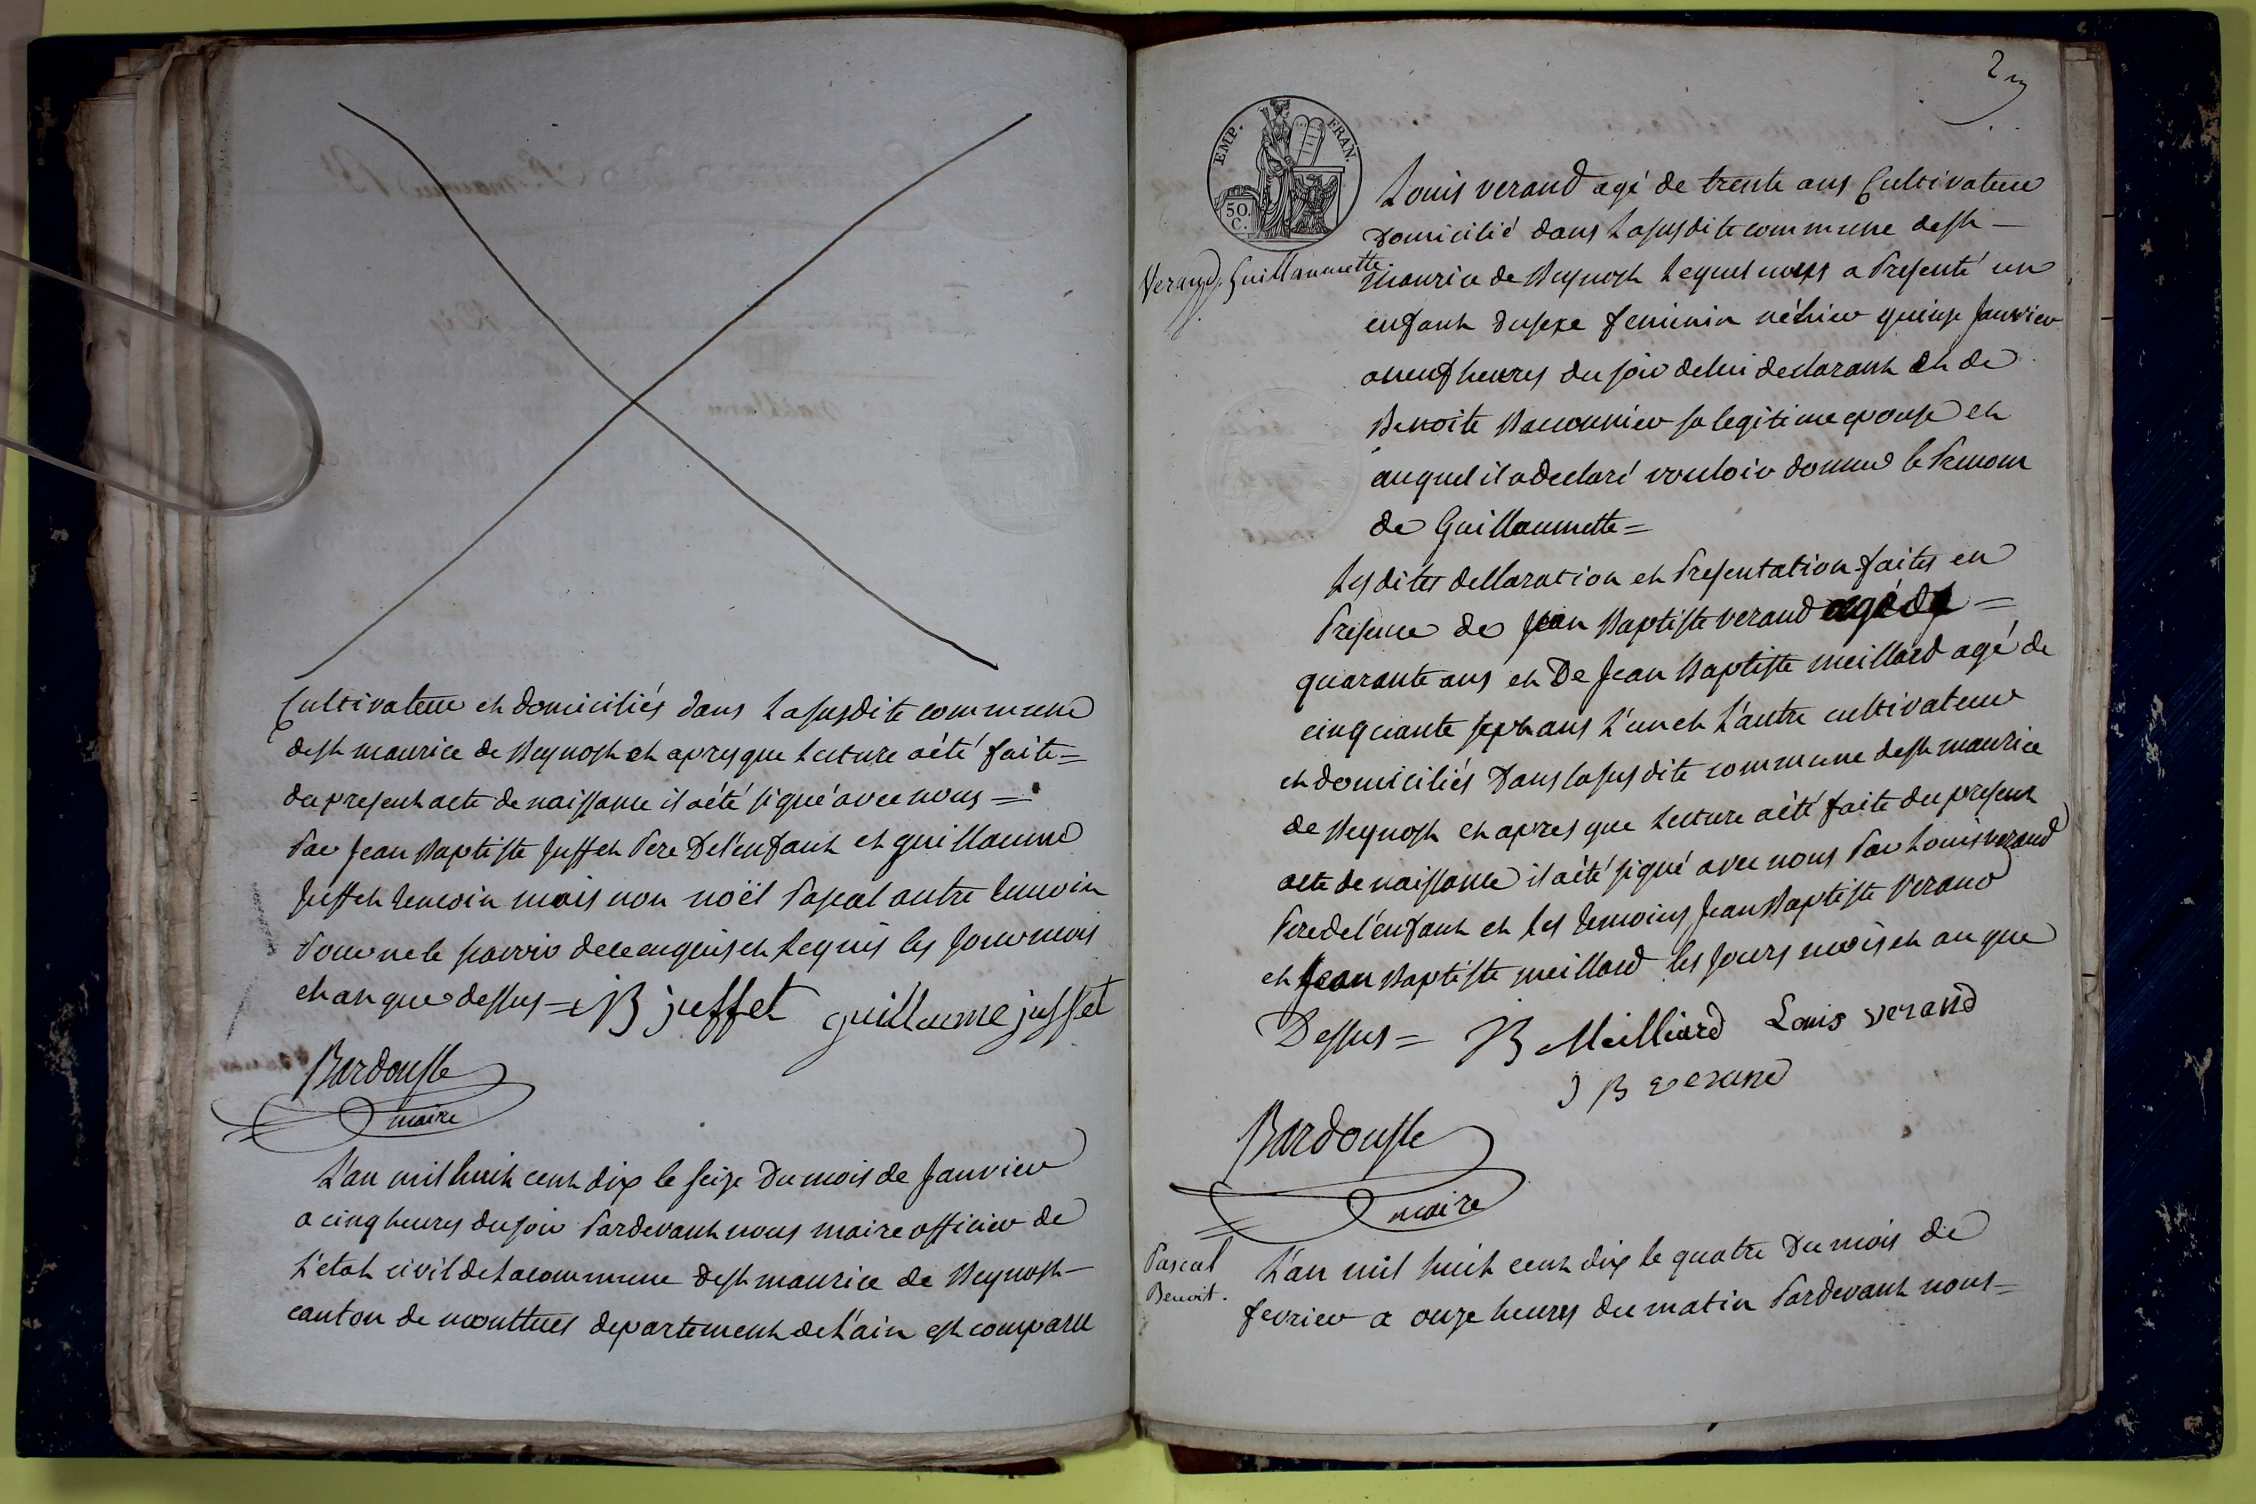 Cultivateur et domiciliés dans La susdite commune
de st maurice de Beynost et apres que Lecture a été faite =
du present acte de naissance il a été signé avec nous =
Par Jean Baptiste Juffet Pere De l'enfant et guillaume
Juffet temoin mais non noël Pascal autre temoin
Pour ne le savoir de ce enquis et Requis les jour mois
et an que dessus = JB juffet guillaume juffet
Bardousse
maire
L'an mil huit cent dix le seize Du mois de Janvier
a cinq heures du soir Pardevant nous maire officier de
L'etat civil de La commune de st maurice de Beynost -
canton de montluel departement de L'ain est comparu
2
EMP. FRAN.
50. C.
Louis verand agé de trente ans Cultivateur
Domicilié dans La susdite commune de st -
Verand, Guillaumette.
maurice de Beynost Lequel nous a Presenté un
enfant du sexe feminin né hier quinze Janvier
a neuf heures du soir de lui declarant et de
Benoite Baconnier sa legitime epouse et
auquel il a declaré vouloir donner le Prenom
de Guillaumette =
Les dites declaration et Presentation faites en
Presence de Jean Baptiste verand agé de =
quarante ans et De Jean Baptiste meillard agé de
cinquante sept ans L'un et L'autre cultivateur
et domiciliés Dans la susdite commune de st maurice
de Beynost et apres que Lecture a été faite du present
acte de naissance il a été signé avec nous Par Louis verand
Pere de l'enfant et Les temoins Jean Baptiste Verand
et Jean Baptiste meillard les jours mois et an que
Dessus = JB Meilliard Louis verand
J B verand
Bardousse
maire
Pascal
Benoit.
L'an mil huit cent dix le quatre Du mois de
fevrier a onze heures du matin Pardevant nous =